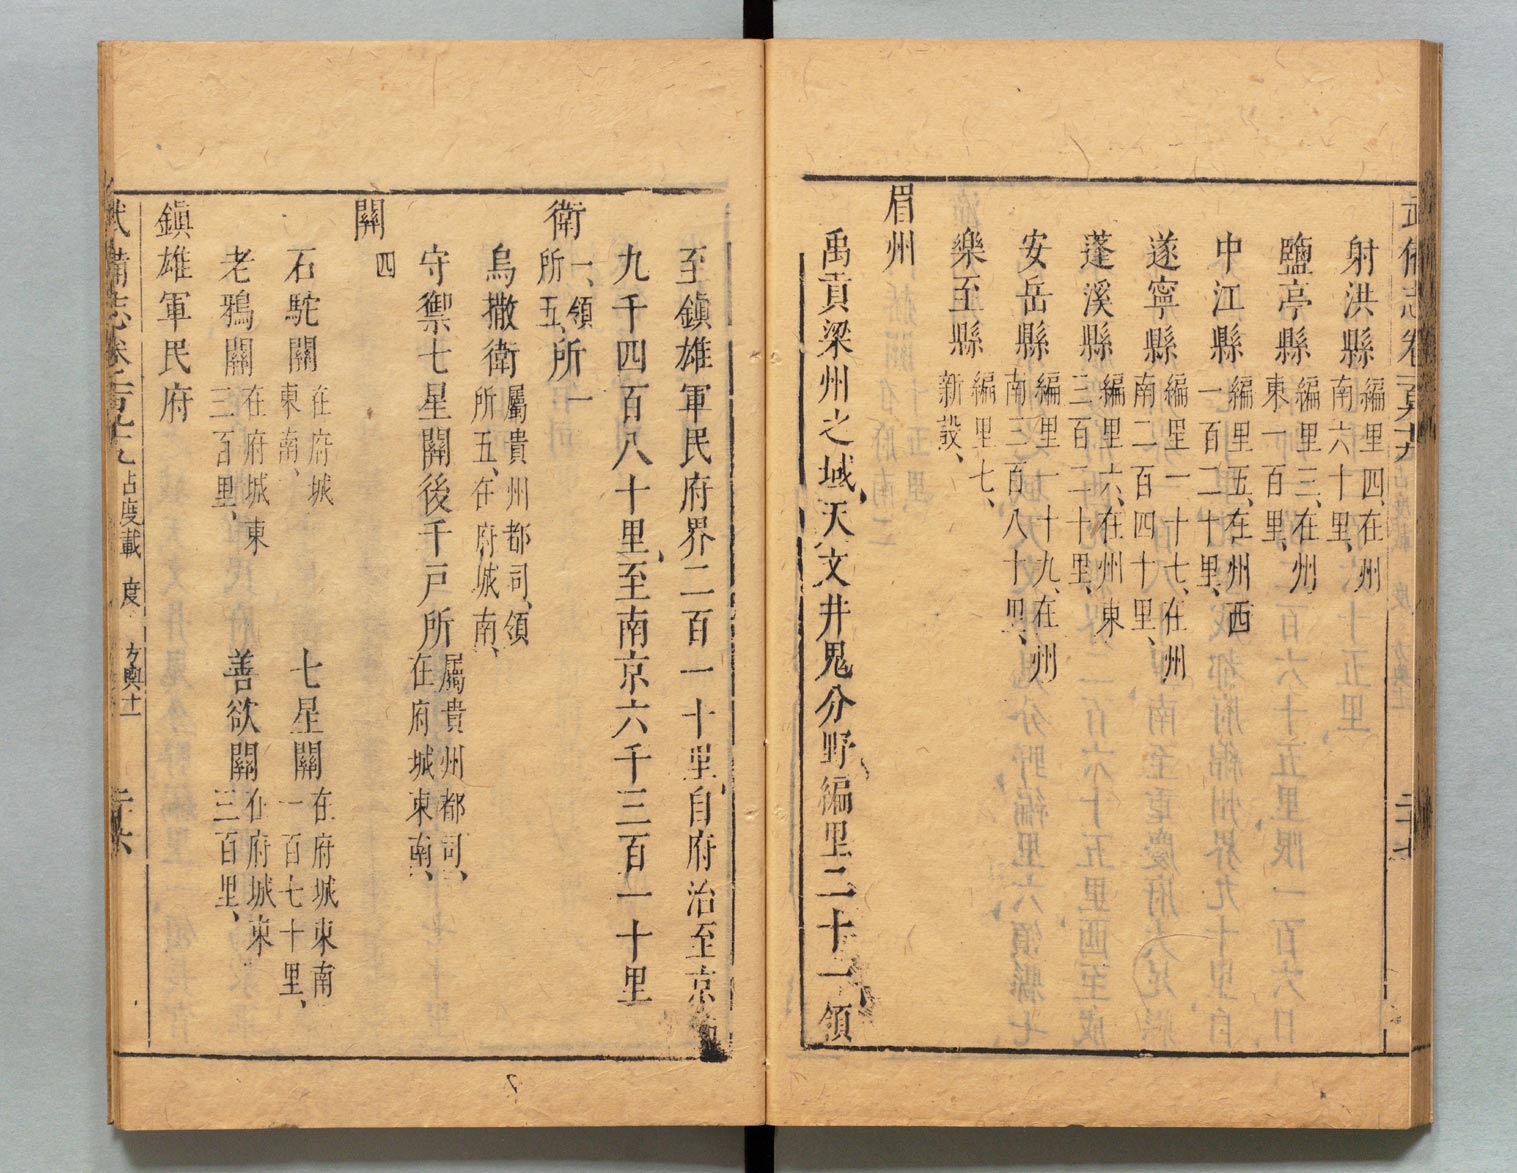 射洪縣編里四、在州南六十里、
鹽亭縣編里三、在州東一百里、
中江縣編里五、在州西一百二十里、
遂寧縣編里一十七、在州南二百四十里、
蓬溪縣編里六、在州東三百二十里、
安岳縣編里一十九、在州南三百八十里、
樂至縣編里七、新設、
眉州
禹貢梁州之域、天文井鬼分野、編里二十一、領
至鎮雄軍民府界二百一十里、自府治至京
九千四百八十里、至南京六千三百一十里
衛一、領所五、所一
烏撒衛屬貴州都司、領所五、在府城南、
守禦七星關後千戶所屬貴州都司、在府城東南、
關四
石駝關在府城東南、 七星關在府城東南一百七十里、
老鴉關在府城東三百里、 善欲關在府城東三百里、
鎮雄軍民府
武備志卷 占度載 度 方輿十一 二十六